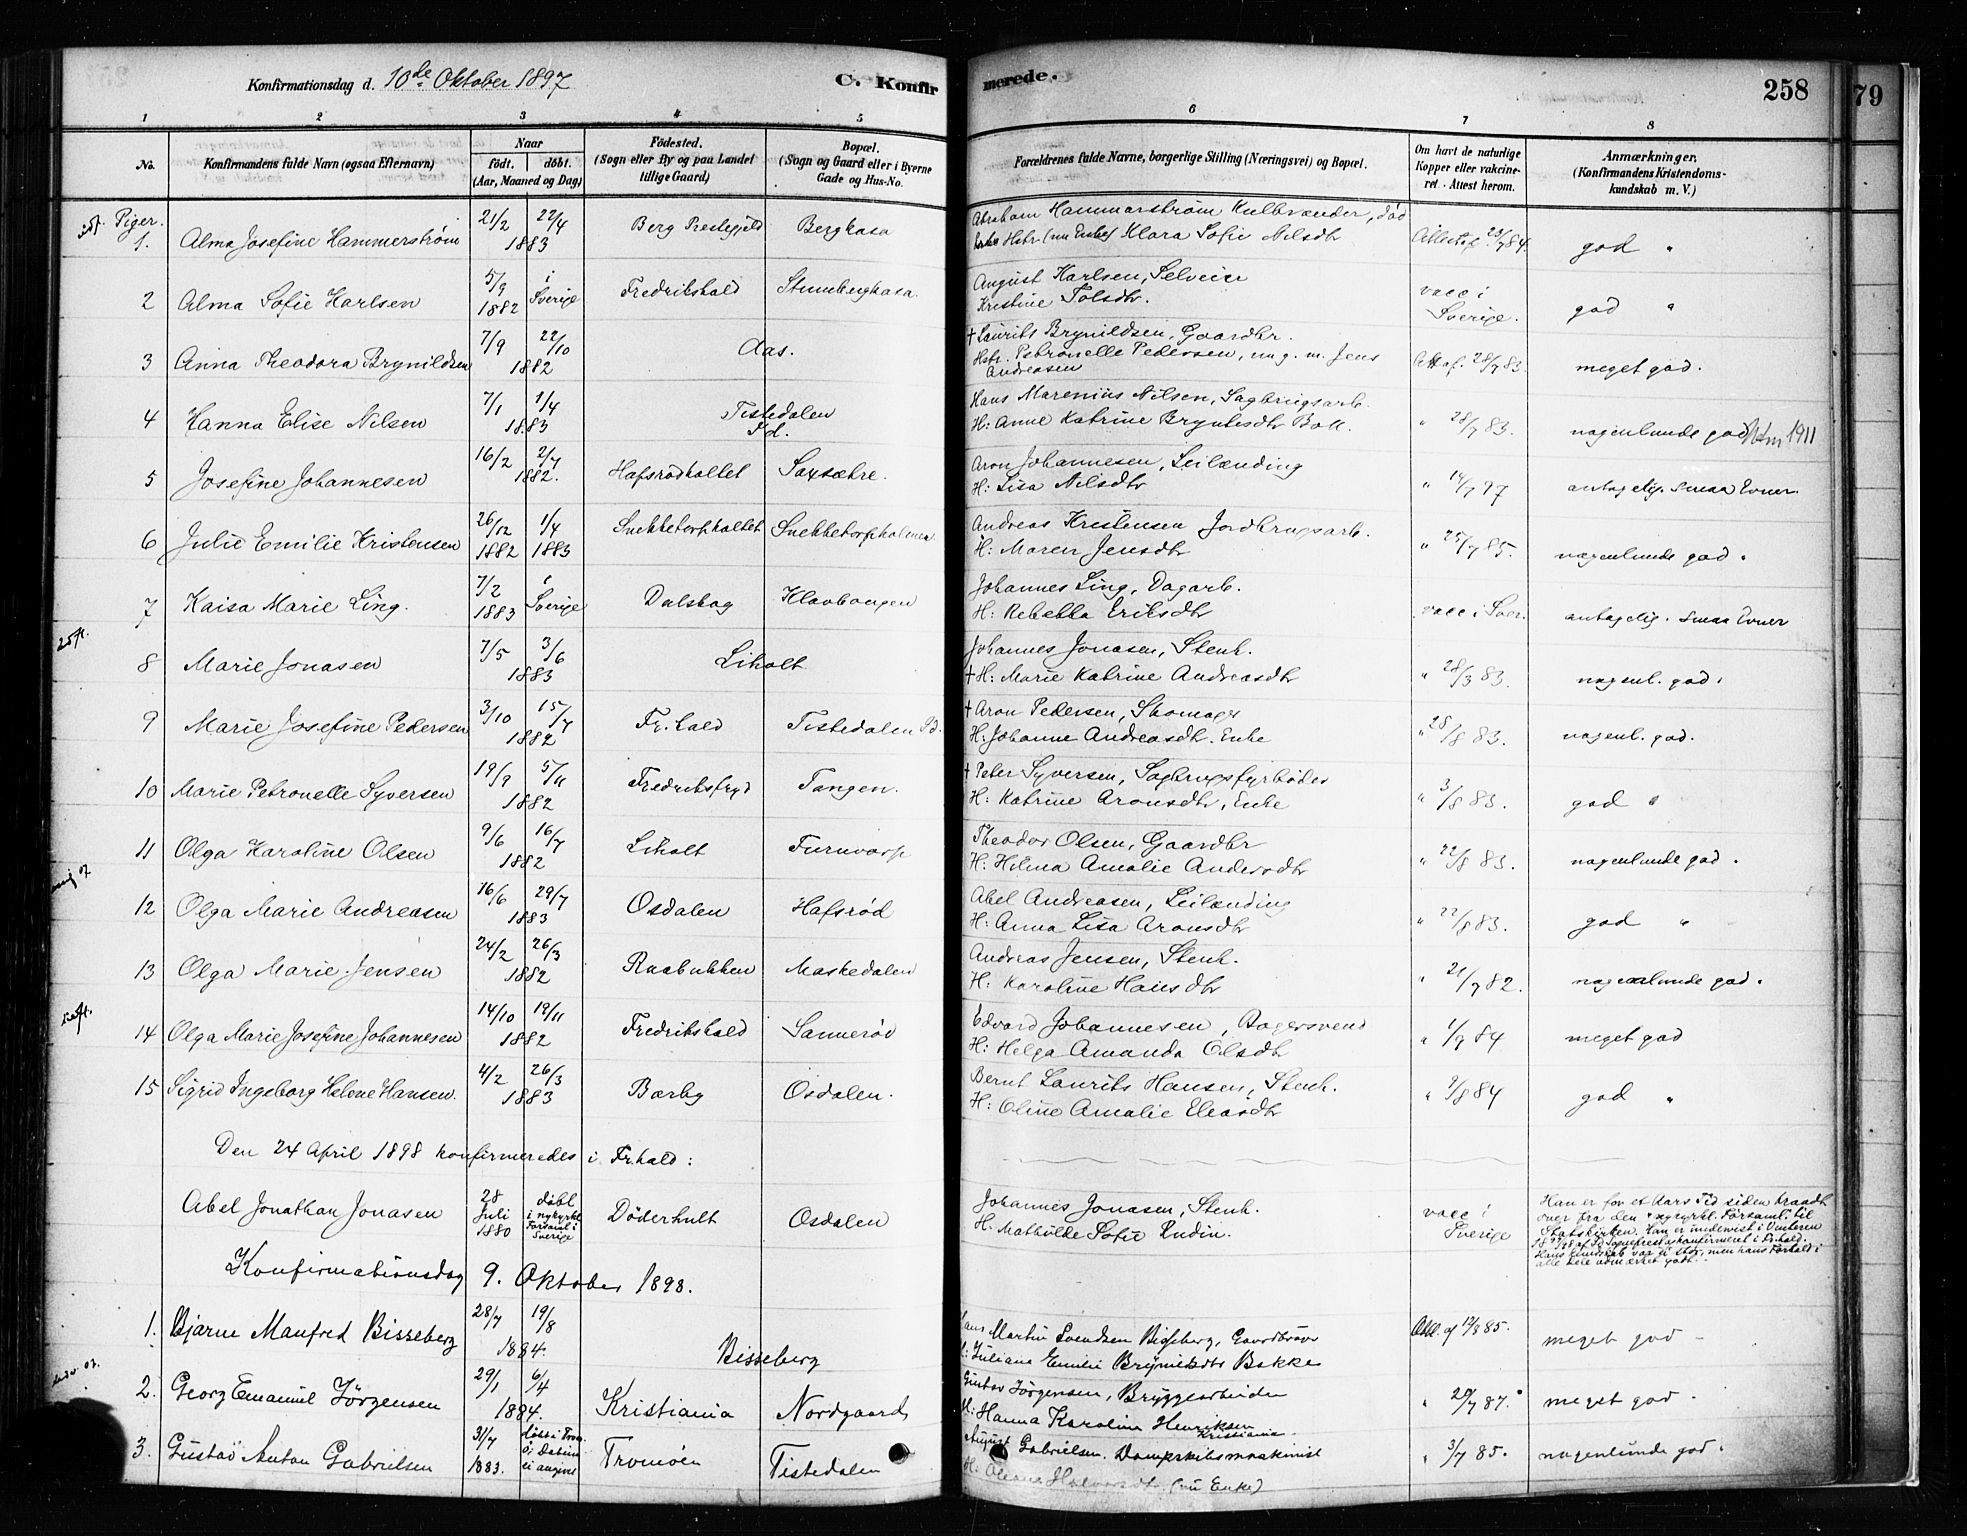 Konfirmationsdag d. 10de Oktober 1897 C. Konfir merede. 258 79
1 2 3 4 5 6 7 8
No. Konfirmandens fulde Navn (ogsaa Efternavn) Naar födt. döbt. (Aar, Maaned og Dag) Födested. (Sogn eller By og paa Landet tillige Gaard) Bopæl. (Sogn og Gaard eller i Byerne Gade og Hus-No. Forældrenes fulde Navne, borgerlige Stilling (Næringsvei) og Bopæl. Om havt de naturlige Kopper eller vakcineret. Attest herom. Anmærkninger. (Konfirmandens Kristendomskundskab m. V.)
Piger.
1. Alma Josefine Hammerstrøm 21/2 22/4 1883 Berg Prestegjeld Bergkasa Abraham Hammarstrøm Kulbrænder, død
Hstr (nu Enke) Klara Sofie Nilsdtr 84. god "
2 Alma Sofie Karlsen 5/9 1882 i Sverige Fredrikshald Stumbergkasa August Karlsen, Selveier
Kristine Tolsdtr. vacc i Sverige. god "
3 Anna Theodora Brynildsen 7/9 22/10 1882 Aas. † Laurits Brynildsen, Gaardbr.
Hstr. Petronelle Pedersen, nu g. m. Jens Andreasen Att af. 28/7 83. meget god.
4 Hanna Elise Nilsen 7/1 1/4 1883 Tistedalen Fd. Hans Marenius Nilsen, Sagbrugsarb.
H: Anne Katrine Bryntesdtr Boll. " 28/7 83. nogenlunde god 1911
5 Josefine Johannesen 16/2 2/7 1882. Hafsrødholtet Saxsætre. Aron Johannesen, Leilænding
H: Lisa Nilsdtr " 14/7 97 antagelig. smaa Evner.
6 Julie Emilie Kristensen 26/12 1882 1/4 1883 Snekketorpholtet Snekketorpholmen Andreas Kristensen Jordbrugsarb.
H: Maren Jensdtr " 25/7 85. nogenlunde god.
7 Kaisa Marie Ling. 7/2 1883 i Sverige Dalskog Klavbougen Johannes Ling, Dagarb.
H: Rebekka Eriksdtr vacc i Sver. antagelig. smaa Evner
8 Marie Jonasen 7/5 3/6 1883 Liholt Johannes Jonasen, Stenh.
† H: Marie Katrine Andreasdtr " 28/3 83. nogenl. god.
9 Marie Josefine Pedersen 3/10 15/7 1882 Fr.hald Tistedalen Fd. † Aron Pedersen, Skomager
H: Johanne Andreasdtr. Enke " 28/8 83. nogenl. god.
10 Marie Petronelle Syversen 19/9 5/11 1882 Fredriksfryd Tangen. † Peter Syversen, Sagbrugsfyrbøder
H: Katrine Aronsdtr, Enke " 3/8 83. god "
11 Olga Karoline Olsen 9/6 16/7 1882 Liholt Furuvarp Theodor Olsen, Gaardbr
H: Helma Amalie Andersdtr " 22/8 83. nogenlunde god.
12 Olga Marie Andreasen 16/6 29/7 1883 Osdalen Hafsrød Abel Andreasen, Leilænding
H: Anna Lisa Aronsdtr " 22/8 83. god "
13 Olga Marie Jensen 24/2 26/3 1882 Raabukken Maskedalen Andreas Jensen, Stenh.
H: Karoline Hansdtr " 21/7 82. nogenlunde god.
14 Olga Marie Josefine Johannesen 14/10 19/11 1882 Fredrikshald Sannerød Edvard Johannesen, Bagersvend
H: Helga Amanda Olsdtr " 1/9 84 meget god
15 Sigrid Ingeborg Helene Hansen. 4/2 26/3 1883 Bærby Osdalen. Bernt Laurits Hansen, Stenh.
H: Oline Amalie Eleasdtr " 9/8 84 god "
Den 24 April 1898 konfirmeredes i Fr.hald:
Abel Jonathan Jonasen 28 Juli 1880 døbt i nykyrkl. Forsaml i Sverige Döderhult Osdalen Johannes Jonasen, Stenh.
H: Mathilde Sofie Rudin. vacc i Sverige Han er for et Aars Tid siden traadt
over fra den "nykyrkl. Forsaml." til
Statskirken. Han er undervist i Vinteren
1897/98 af Sognepresten & konfirmeret i Fr.hald.
Hans Kundskab var ei stor, men hans Forhold i
alle Dele udmærket godt.
Konfirmationsdag 9. Oktober 1898.
1. Bjarne Manfred Bisseberg 28/7 19/8 1884. Bisseberg Hans Martin Svendsen Bisseberg, Gaardbruger
H: Juliane Emilie Brynildsdtr Bakke Att. af 12/8 85. meget god
2. Georg Emanuel Jörgensen 29/1 6/4 1884. Kristiania Nordgaard Gustav Jörgensen, Bryggearbeider
H: Hanna Karoline Henriksen Kristiania. " 20/7 87. meget god
3. Gustav Anton Gabrielsen 31/7 1883. Tromöen Tistedalen August Gabrielsen. Dampskibsmaskinist
H: Halvorsdtr (nu Enke) " 3/7 85. nogenlunde god.